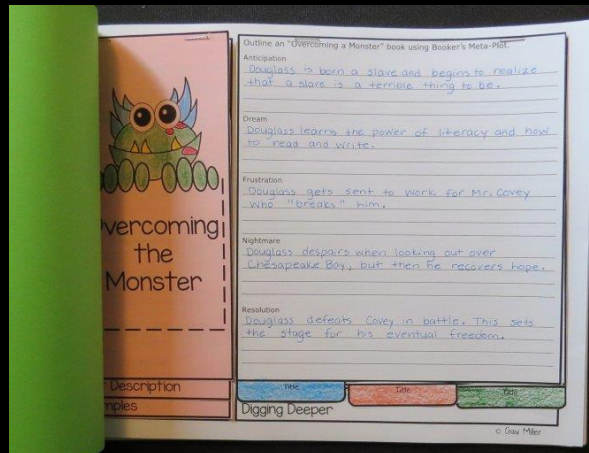 Outline an "Overcoming a Monster" book using Booker's Meta-Plot.
Anticipation
Douglass is born a slave and begins to realize
that a slave is a terrible thing to be.
Dream
Douglass learns the power of literacy and how
to read and write.
Frustration
Douglass gets sent to work for Mr. Covey
who "breaks" him.
Nightmare
Douglass despairs when looking out over
Chesapeake Bay, but then he recovers hope.
Resolution
Douglass defeats Covey in battle. This sets
the stage for his eventual freedom.
vercoming
the
Monster
Description
mples
Title
Title
Title
Digging Deeper
© Gay Miller